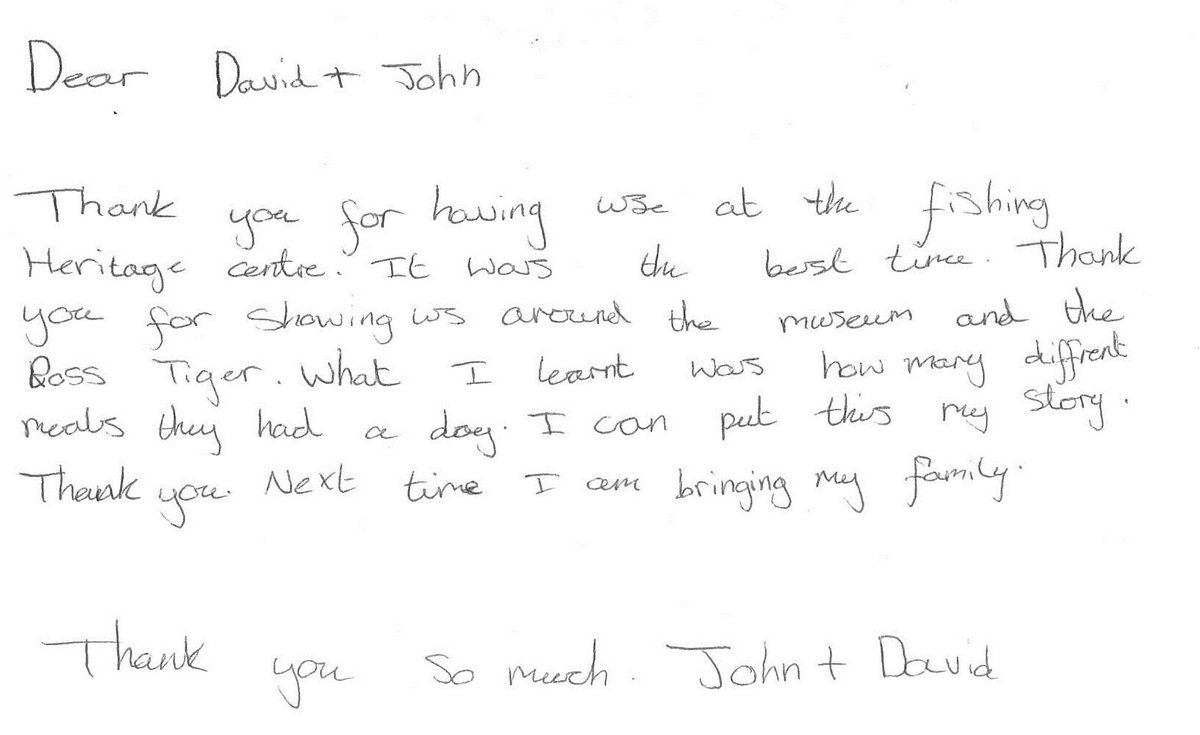 Dear David + John
Thank you for having use at the fishing
Heritage centre. It was the best time. Thank
you for showing us around the museum and the
Ross Tiger. What I learnt was how many diffrent
meals they had a day. I can put this my story.
Thank you. Next time I am bringing my family.
Thank you so much. John + David